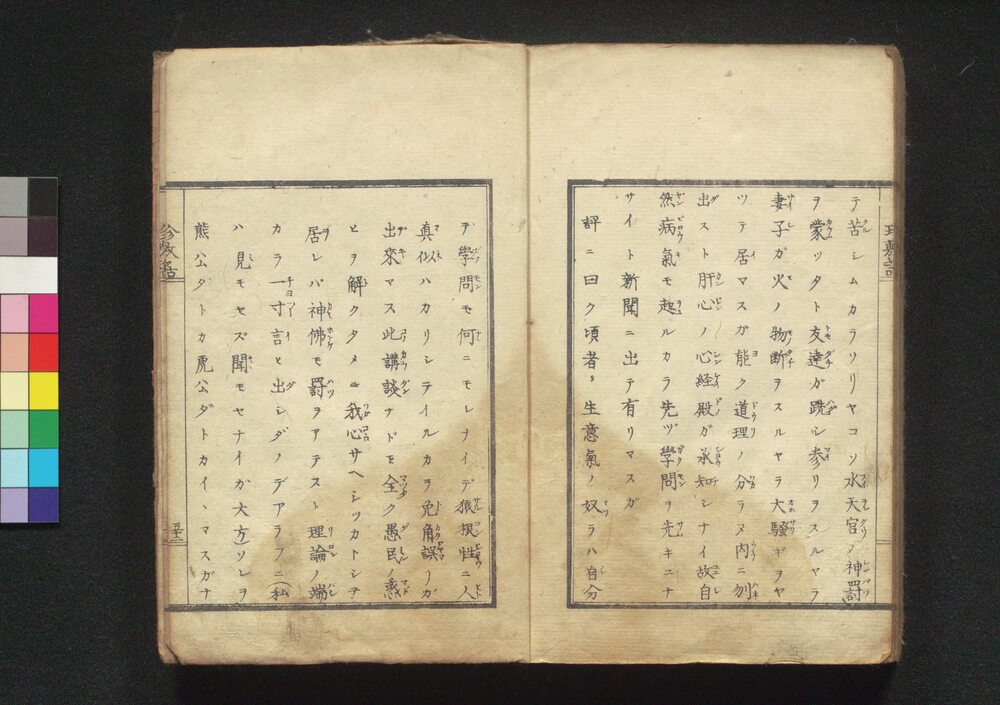 テ苦シムカラソリヤコソ水天宮ノ神罰
ヲ蒙ッタト友達ガ跣シ参リヲスルヤラ
妻子ガ火ノ物断ヲスルヤラ大騒ギヲヤ
ツテ居マスガ能ク道理ノ分ラヌ内ニ刎
出スト肝心ノ心経殿ガ承知シナイ故自
然病氣モ起ルカラ先ヅ學問ヲ先キニナ
サイト新聞ニ出テ有リマスガ
評ニ曰ク頃者ハ生意氣ノ奴ラハ自分
デ學問モ何ニモシナイデ猿根性ニ人
真似ハカリシテイルカラ兎角誤リガ
出來マス此講談ナドモ全ク愚民ノ惑
ヒヲ解クタメニ我心サヘシツカトシテ
居レバ神佛モ罰ヲアテスト理論ノ端
カラ一寸言ヒ出シタノデアラフニ私
ハ見モセズ聞モセナイガ大方ソレヲ
熊公タトカ虎公ダトカイヽマスガナ
五十